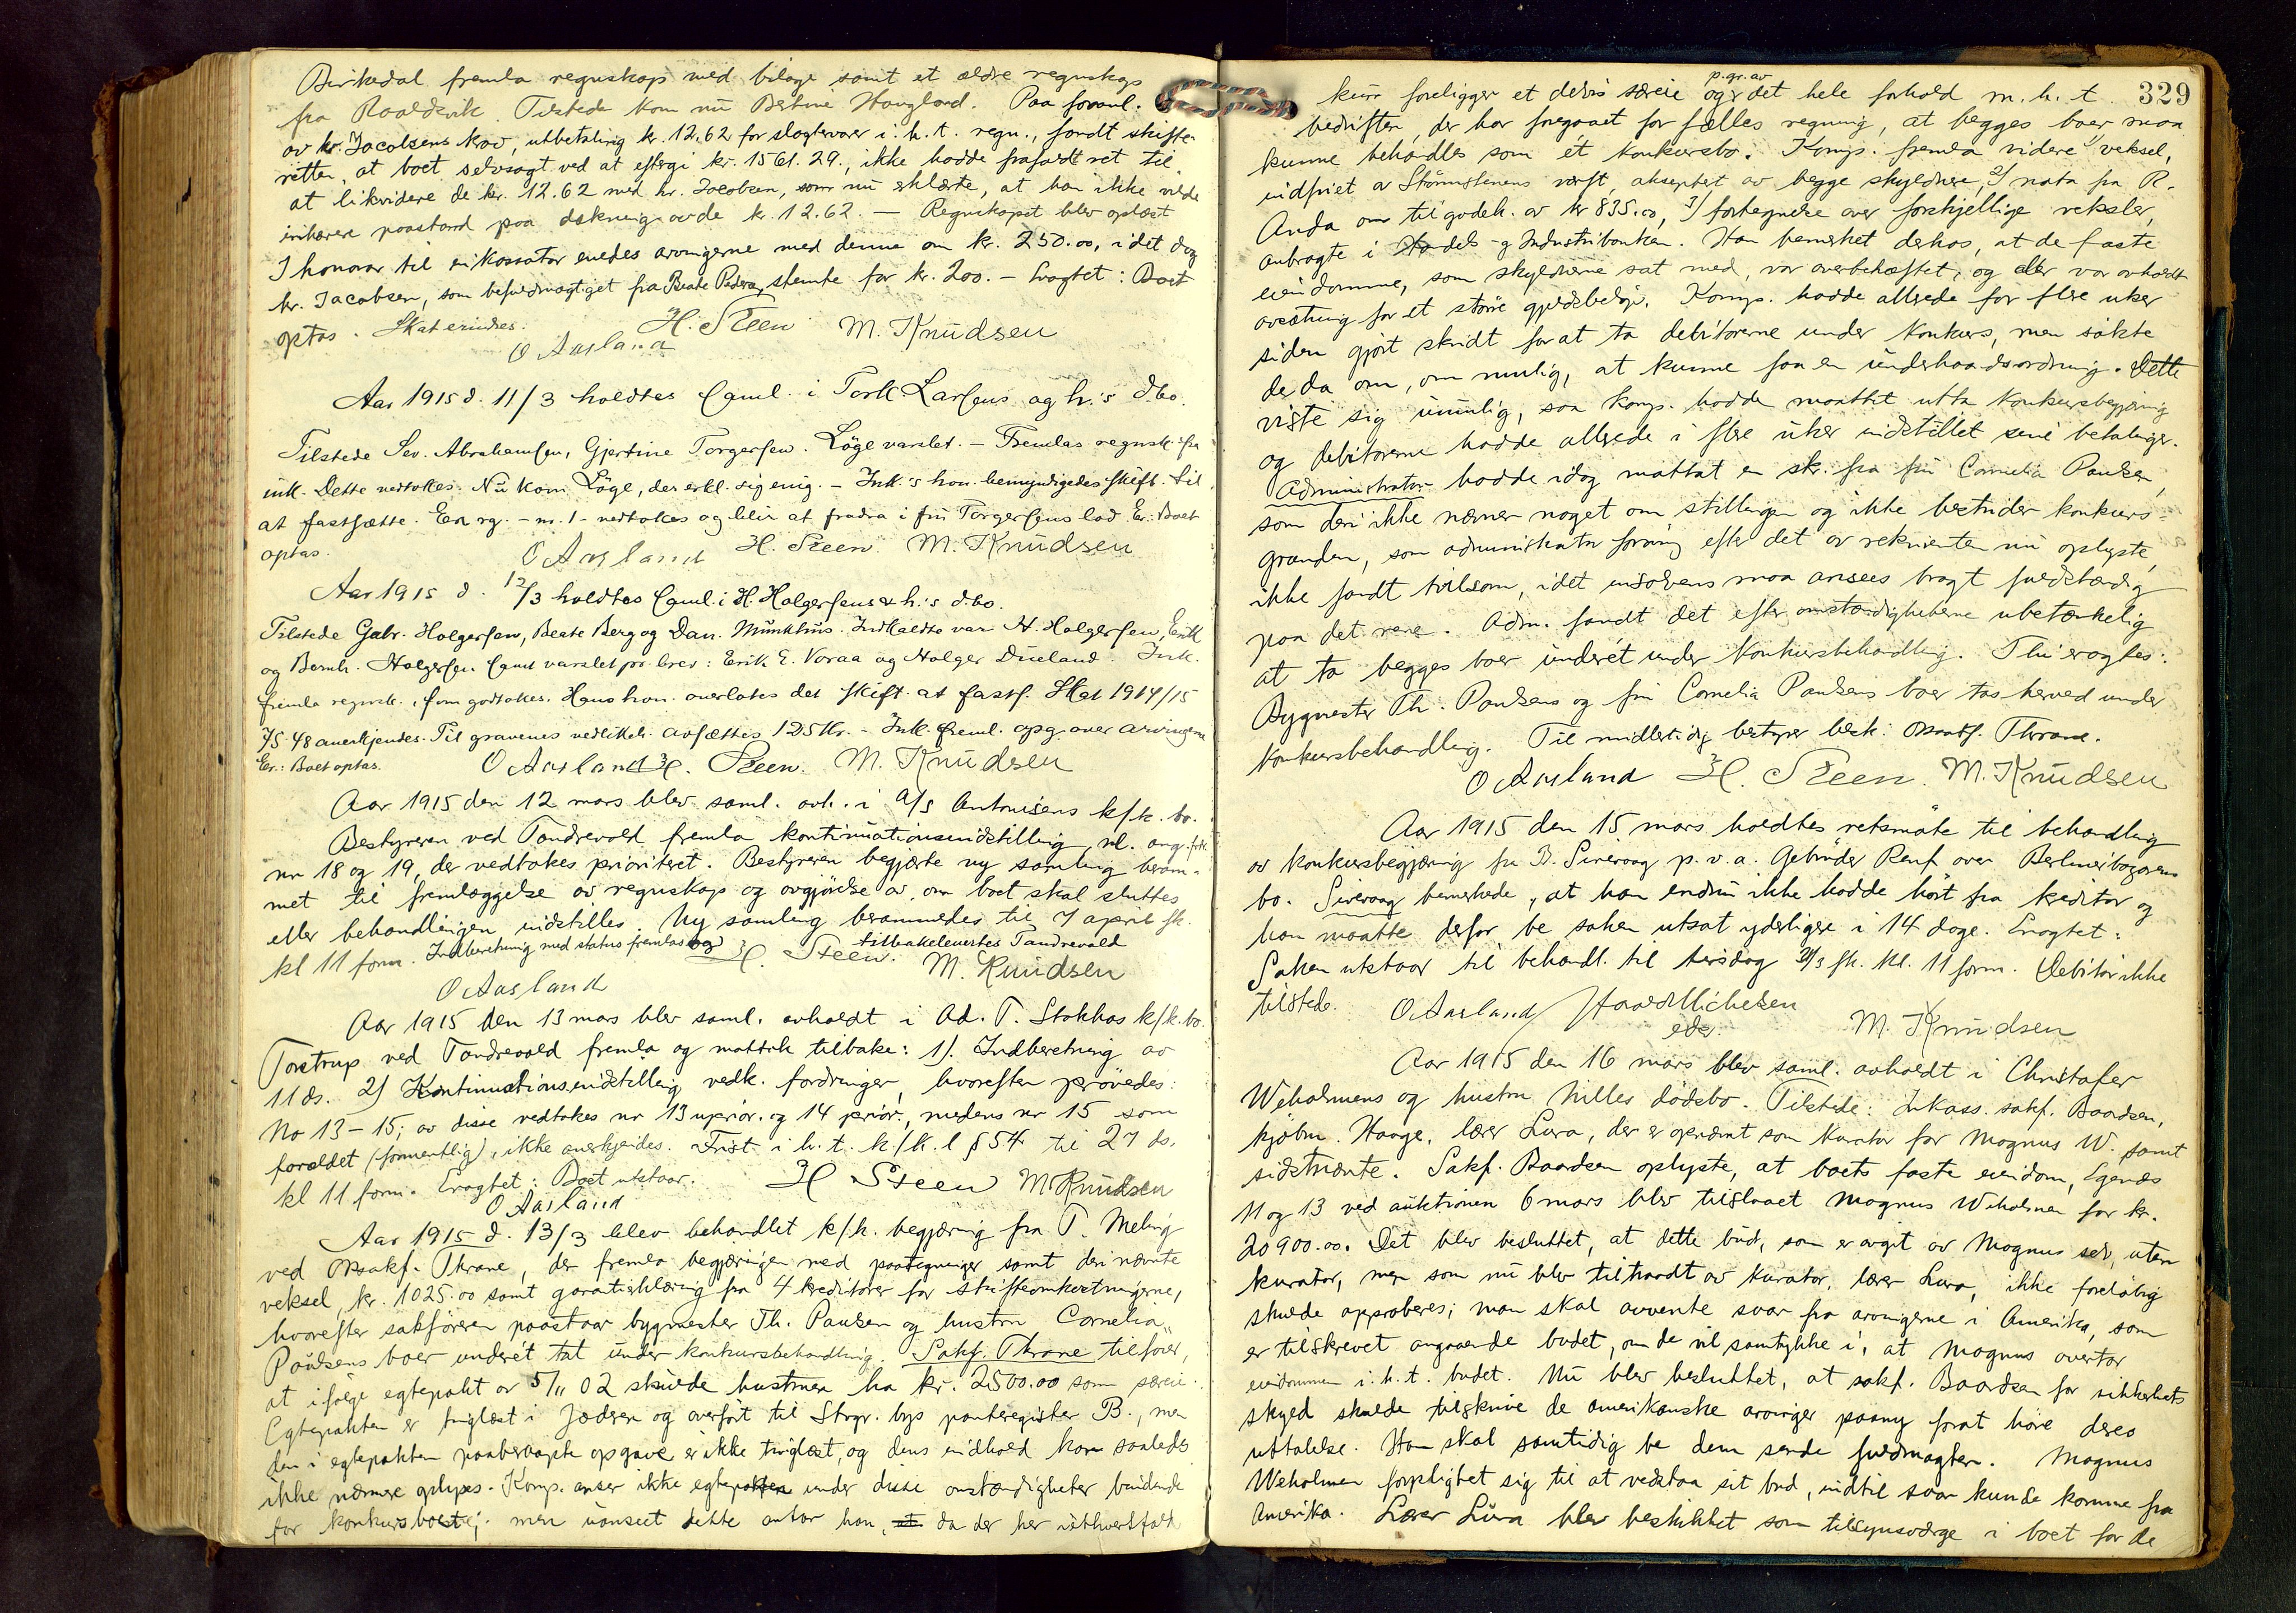 Birkedal fremla regnskap med bilage samt et ældre regnskap
fra Roaldsvik. Tilstede kom nu Bertine Haugland. Paa foranl.
av hr. Jacobsens krav, utbetaling kr. 12.62 for slagtervarer i. h. t. regn., fandt skifte-
retten, at boet selvsagt ved at eftergi kr. 1561.29, ikke hadde frafaldt ret til
at likvidere de kr. 12.62 med hr. Jacobsen, som nu erklærte, at han ikke vilde
paastand paa dækning av de kr. 12.62. — Regnskapet blev oplæst
I honorar til inkassator enedes arvingerne med denne om kr. 250.00, idet dog
hr. Jacobsen, som befuldmægtiget fra Beate Pedersen, stemte for kr. 200. - Eragtet: Boet
optas. Skat erindres.
O Aasland H. Steen M. Knudsen
Aar 1915 d. 11/3 holdtes saml. i Tork Larsens og h.'s d.bo.
Tilstede Sev. Abrahamsen, Gjertine Torgersen. Löge varslet. - Fremlas regnsk. fra
ink. Dette vedtokes. Nu kom Löge, der erkl. sig enig. - Ink.'s hon. bemyndigedes skift. til
at fastsætte. En rg. - nr. 1 - vedtokes og blir at fradra i fru Torgersens lod. Er: Boet
optas.
O Aasland H. Steen. M. Knudsen
Aar 1915 d. 12/3 holdtes saml. i H. Holgersens & h.'s d.bo.
Tilstede Gabr. Holgersen, Beate Berg og Dan. Munkhus. Indkaldte var N. Holgersen, Erik
og Bernh. Holgersen samt varslet pr. brev: Erik E. Voraa og Holger Dueland. Ink.
fremla regnsk., som godtokes. Hans hon. overlates det skift. at fasts. Skat 1914/15
75.48 anerkjendes. Til gravenes vedlikeh. avsættes 125 kr. - Ink. freml. opg. over arvingerne
Er.: Boet optas.
O Aasland H. Steen. M. Knudsen
Aar 1915 den 12 mars blev saml. avh. i A/S k/k. bo.
Bestyreren ved Tandrevold fremla kontinuationsindstilling, vl. ang. fork.
nr 18 og 19, der vedtokes prioritert. Bestyreren begjærte ny samling beram-
met til fremlæggelse av regnskap og avgjörelse av, om boet skal sluttes
eller behandlingen indstilles. Ny samling berammedes til 7 april fk.
kl 11 form. Indberetning med status fremlas og tilbakeleveredes Tandrevold
O Aasland H. Steen. M. Knudsen
Aar 1915 den 13 mars blev saml. avholdt i Ad. T. Stokkas k/k. bo.
Torstrup ved Tandrevold fremla og mottok tilbake: 1). Indberetning av
11 ds. 2) Kontinuationsindstilling vedk. fordringer, hvorefter prövedes:
No 13-15; av disse vedtokes nr 13 uprior. og 14 prior., medens nr 15 som
foreldet (formentlig), ikke anerkjendes. Frist i h. t. k/k. l § 54 til 27 ds.
kl 11 form. Eragtet: Boet utstaar.
O Aasland H Steen M Knudsen
Aar 1915 d. 13/3 blev behandlet k/k. begjæring fra T. Meling
ved oksakf. Thrane, der fremla begjæringen med paategninger samt den nævnte
veksel, kr. 1025.00 samt garantierklæring fra 4 kreditorer for skifteomkostningerne,
hvorefter sakföreren paastaar bygmester Th. Paulsen og hustru Cornelia
Paulsens boer underét tat under konkursbehandling. Sakf. Thrane tilförer,
at ifølge egtepakt av 5/11 02 skulde hustruen ha kr. 2500.00 som særeie.
Egtepakten er tinglæst i Jæderen og overfört til Stvgr. bys panteregister B., men
den i egtepakten paaberaapte opgave er ikke tinglæst, og dens indhold kan saaledes
ikke nærmere oplyses. Komp. anser ikke egtepakten under disse omstændigheter bindende
for konkursboet; men uanset dette antar han, at da der her ialhvertfald
329
kun foreligger et delvis særeie og p. gr. av det hele forhold m. h. t.
bedriften, der har foregaaet for fælles regning, at begges boer maa
kunne behandles som ét konkursbo. Komp. fremla videre 1) veksel,
indfriet av Strömstenens værft, akseptert av begge skyldnere, 2) nota fra R.
Anda om tilgodeh. av kr 835.00, 3) fortegnelse over forskjellige veksler,
anbragte i Handels- og Industribanken. Han bemerket derhos, at de faste
eiendomme, som skyldnerne sat med, var overbehæftet, og der var avholdt
avsætning for et större gjeldsbelöp. Komp. hadde allerede for flere uker
siden gjört skridt for at ta debitorerne under konkurs, men sökte
de da om, om mulig, at kunne faa en underhaandsordning. Dette
viste sig umulig, saa komp. hadde maattet utta konkursbegjæring
og debitorerne hadde allerede i flere uker indstillet sine betalinger.
Administrator hadde idag mottat en skr. fra fru Cornelia Paulsen,
som deri ikke nævner noget om stillingen og ikke bestrider konkurs-
grunden, som administrator forövrig efter det av rekvirenten nu oplyste,
ikke fandt tvilsom, idet insolvens maa ansees bragt fuldstændig
paa det rene. Adm. fandt det efter omstændigheterne ubetænkelig
at ta begges boer underét under konkursbehandling. Thi eragtes:
Bygmester Th. Paulsens og fru Cornelia Paulsens boer tas herved under
konkursbehandling. Til midlertidig bestyrer besk: oksakf. Thrane.
O Aasland H. Steen. M. Knudsen
Aar 1915 den 15 mars holdtes retsmöte til behandling
av konkursbegjæring fra B. Sirevaag p. v. a. Gebrüder Renf over Berlinerbazarens
bo. Sirevaag bemerkede, at han endnu ikke hadde hört fra kreditor og
han maatte derfor be saken utsat yderligere i 14 dage. Eragtet:
Saken utstaar til behandl. til tirsdag 30/3 fk. kl. 11 form. Debitor ikke
tilstede.
O Aasland Harald Michelsen M. Knudsen
eds.
Aar 1915 den 16 mars blev saml. avholdt i Christofer
Weholmens og hustru Nilles dödsbo. Tilstede: Inkass. sakf. Baardsen,
kjöbm. Haage, lærer Lura, der er opnævnt som kurator for Magnus W. samt
sidstnævnte. Sakf. Baardsen oplyste, at boets faste eiendom, Egenæs
11 og 13 ved auktionen 6 mars blev tilslaaet Magnus Weholmen for kr.
20900.00. Det blev besluttet, at dette bud, som er avgit av Magnus selv, uten
kurator, men som nu blev tiltraadt av kurator, lærer Lura, ikke foreløbig
skulde approberes; man skal avvente svar fra arvingerne i Amerika, som
er tilskrevet angaaende budet, om de vil samtykke i, at Magnus overtar
eiendommen i. h. t. budet. Nu blev besluttet, at sakf. Baardsen for sikkerhets
skyld skulde tilskrive de amerikanske arvinger paany forat höre deres
uttalelse. Han skal samtidig be dem sende fuldmagter. Magnus
Weholmen forpligtet sig til at vedstaa sit bud, indtil svar kunde komme fra
Amerika. Lærer Lura blev beskikket som tilsynsværge i boet for de